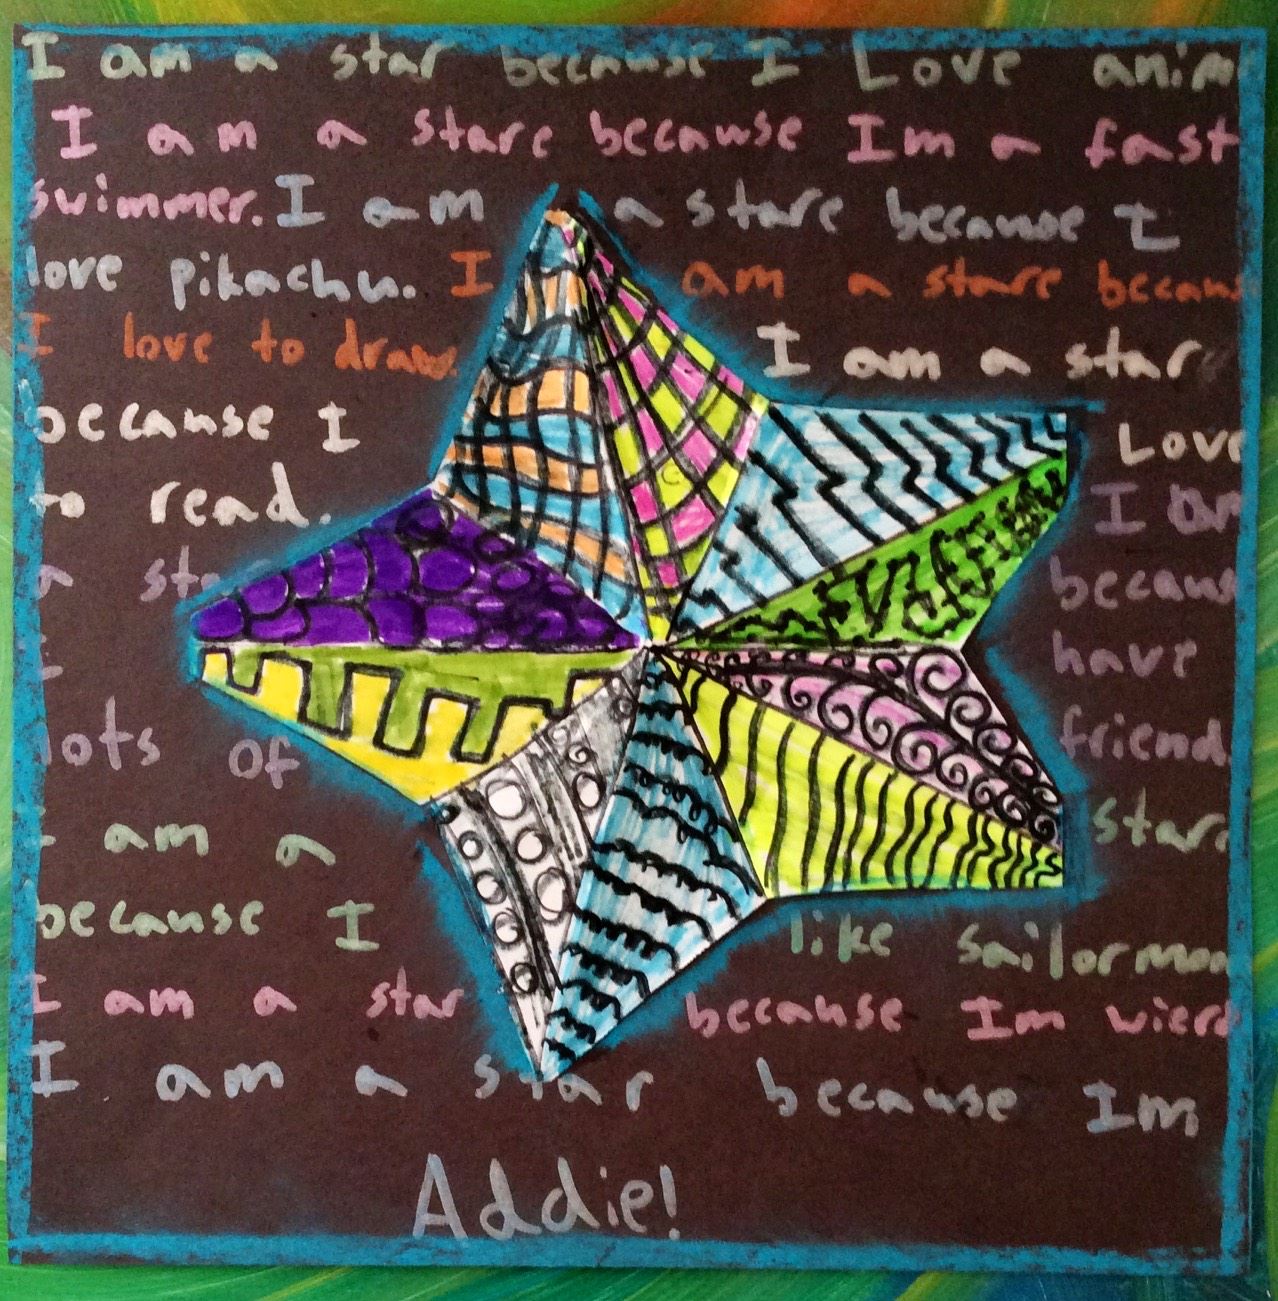 I am a star because I Love anim
I am a stare because Im a fast
swimmer. I am a stare because I
love pikachu. I am a stare becaus
I love to draw. I am a star
because I Love
to read. I am
a sta because
I have
lots of friend
I am a stare
because I like sailormoon
I am a star because Im wierd
I am a star because Im
Addie!